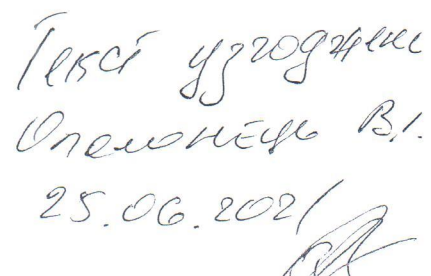 Текст узгоджено
Ополонець В.І.
25.06.2021